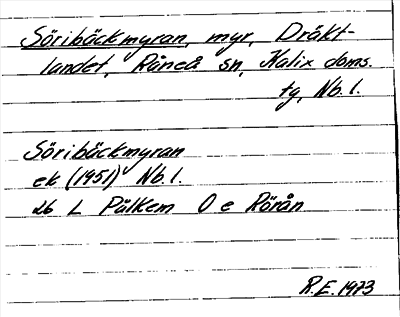 Söribäckmyran, myr, Dräkt-
landet, Råneå sn, Kalix doms.
tg, Nb. l.
Söribäckmyran
ek (1951) Nb. l.
26 L Pålkem O e Rörån
R.E. 1973